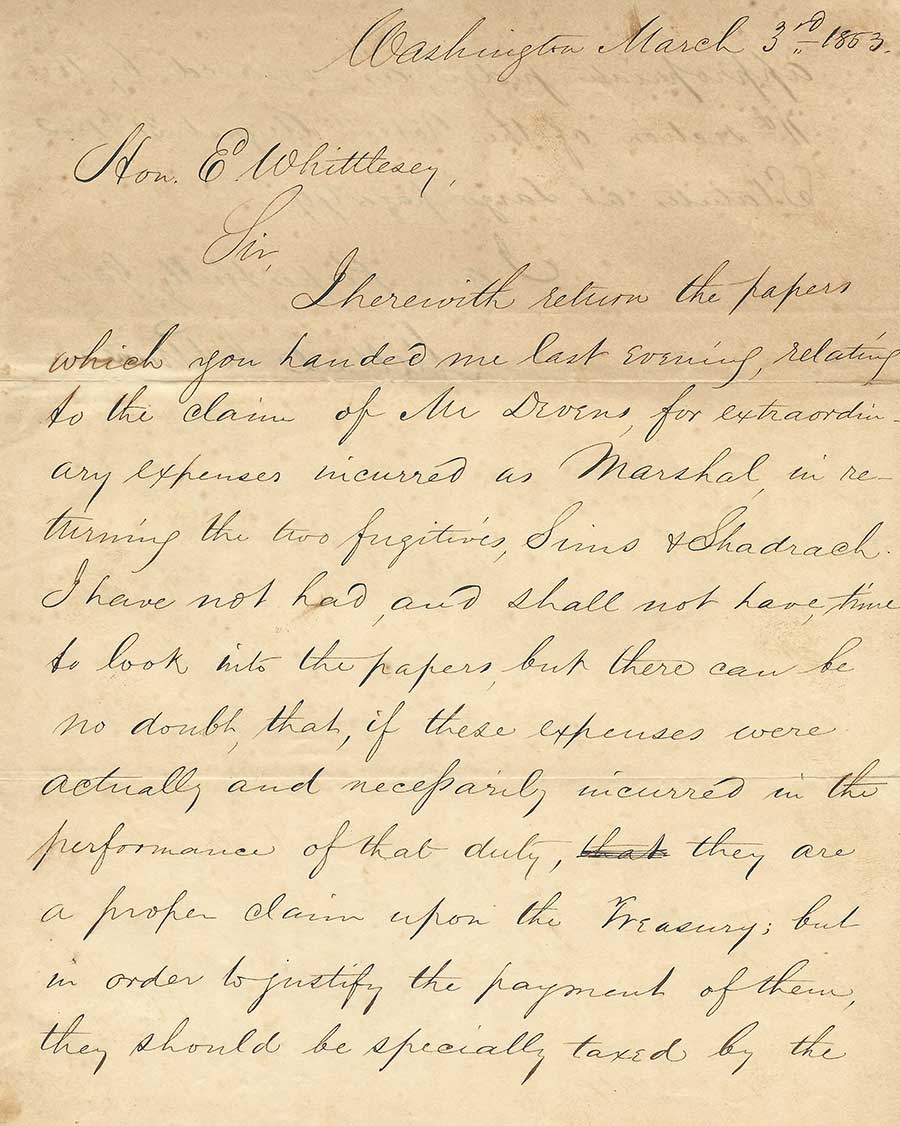 Washington March 3rd 1853.
Hon. E Whittlesey,
Sir,
I herewith return the papers
which you handed me last evening, relating
to the claim of Mr Devens, for extraordin-
ary expenses incurred as Marshal, in re-
turning the two fugitives, Sims & Shadrach.
I have not had, and shall not have, time
to look into the papers, but there can be
no doubt, that, if these expenses were
actually and necessarily incurred in the
performance of that duty, that they are
a proper claim upon the Treasury; but
in order to justify the payment of them,
they should be specially taxed by the